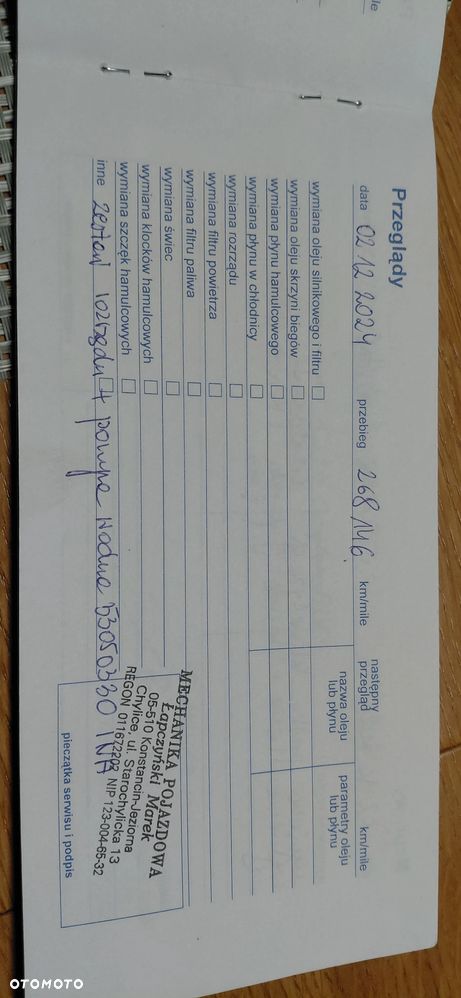 Przeglądy
data 02 12 2024 przebieg 268 146 km/mile następny przegląd km/mile
nazwa oleju lub płynu parametry oleju lub płynu
wymiana oleju silnikowego i filtru
wymiana oleju skrzyni biegów
wymiana płynu hamulcowego
wymiana płynu w chłodnicy
wymiana rozrządu
wymiana filtru powietrza
wymiana filtru paliwa
wymiana świec
wymiana klocków hamulcowych
wymiana szczęk hamulcowych
inne zestaw rozrządu + pompa wodna 530503330 INA
MECHANIKA POJAZDOWA
Łapczyński Marek
05-510 Konstancin-Jeziorna
Chylice, ul. Starochylicka 13
REGON 011672203 NIP 123-004-65-32
pieczątka serwisu i podpis
OTOMOTO